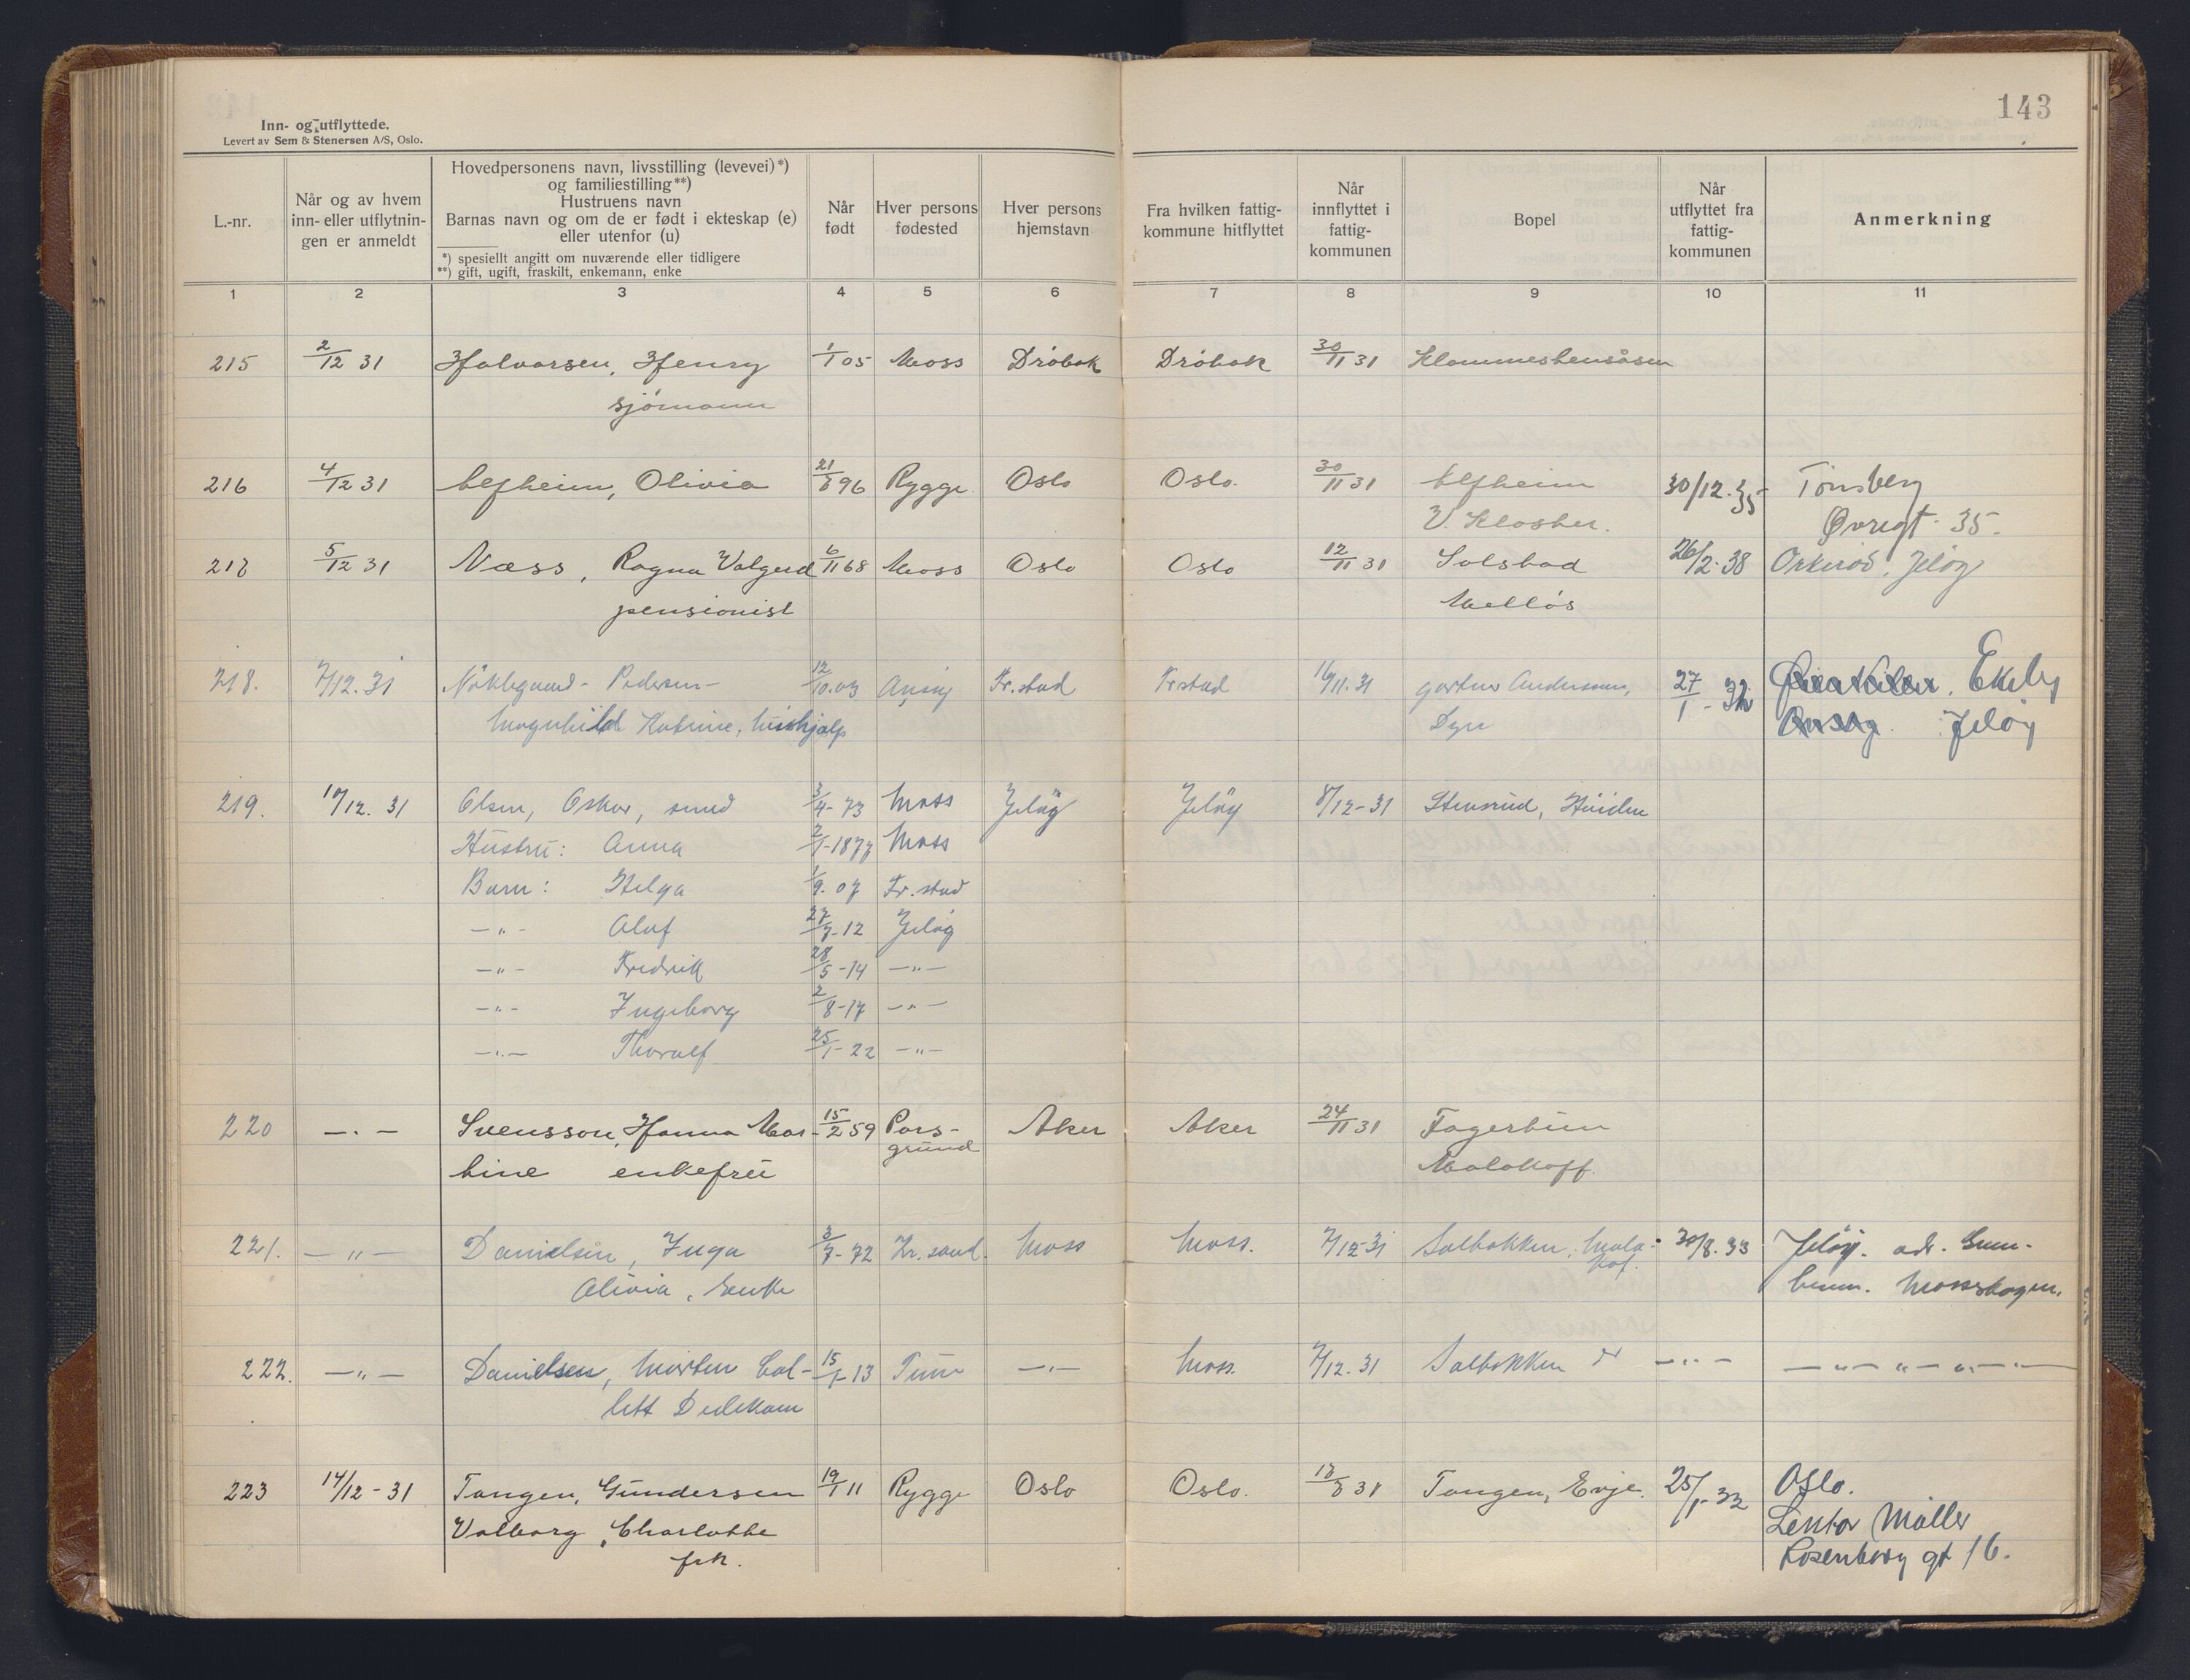 143
Inn- og utflyttede.
Levert av Sem & Stenersen A/S, Oslo.
L.-nr.
Når og av hvem
inn- eller utflytnin-
gen er anmeldt
Hovedpersonens navn, livsstilling (levevei)*)
og familiestilling**)
Hustruens navn
Barnas navn og om de er født i ekteskap (e)
eller utenfor (u)
*) spesiellt angitt om nuværende eller tidligere
**) gift, ugift, fraskilt, enkemann, enke
Når
født
Hver persons
fødested
Hver persons
hjemstavn
Fra hvilken fattig-
kommune hitflyttet
Når
innflyttet i
fattig-
kommunen
Bopel
Når
utflyttet fra
fattig-
kommunen
Anmerkning
1 2 3 4 5 6 7 8 9 10 11
215 2/12 31 Halvorsen, Henry 1/1 05 Moss Dröbak Dröbak 30/11 31
sjömann
216 4/12 31 Olivia 21/8 96 Rygge Oslo Oslo. 30/11 31 30/12. 35 Tönsberg
V. Kloster. Øvregt. 35.
217 5/12 31 Næss, Ragna Valgerd 6/11 68 Moss Oslo Oslo 12/11 31 Solstad 26/2-38 Orkeröd, Jeløy
pensionist Mellös
218. 7/12. 31 Pedersen- 12/10. 03 Fr.stad Frstad 16/11. 31 gartner Andersen, 27/1 - 32 Ekeby
Magnhild Katrine, hushjælp Dyre Jeløy
219. 10/12. 31 Olsen, Oskar, smed 3/4-73 Moss Jeløy Jeløy 8/12-31
Hustru: Anna 2/1-1877 Moss
Barn: Helga 1/9. 07 Fr.stad
-"- Olaf 27/7-12 Jeløy
-"- Fredrik 28/5-14 -"-
-"- Ingeborg 2/8-17 -"-
-"- Thoralf 25/1-22 -"-
220 -"- Svensson, Hanna Mar- 15/2 59 Pors- Aker Aker 24/11 31 Fagertun
grund
tine enkefru Malakoff.
221. -"- Danielsen, Inga 3/7-72 Kr.sand. Moss Moss. 7/12-31 Solbakken, Mala- 30/8. 33 Jeløy. adr. Gun-
kof.
Olivia, enke Mosseskogen.
222. -"- Danielsen, Morten Col- 15/1-13 Tune -"- Moss. 7/12. 31 Solbakken -"- -"-"-"-"-
lett Dedekam
223 14/12-31 Tangen, Gundersen 19/1 11 Rygge Oslo Oslo. 18/8 31 Tangen, Evje. 25/1-32 Oslo.
Valborg Charlotte Lektor Møller
frk. Rosenborg gt 16.